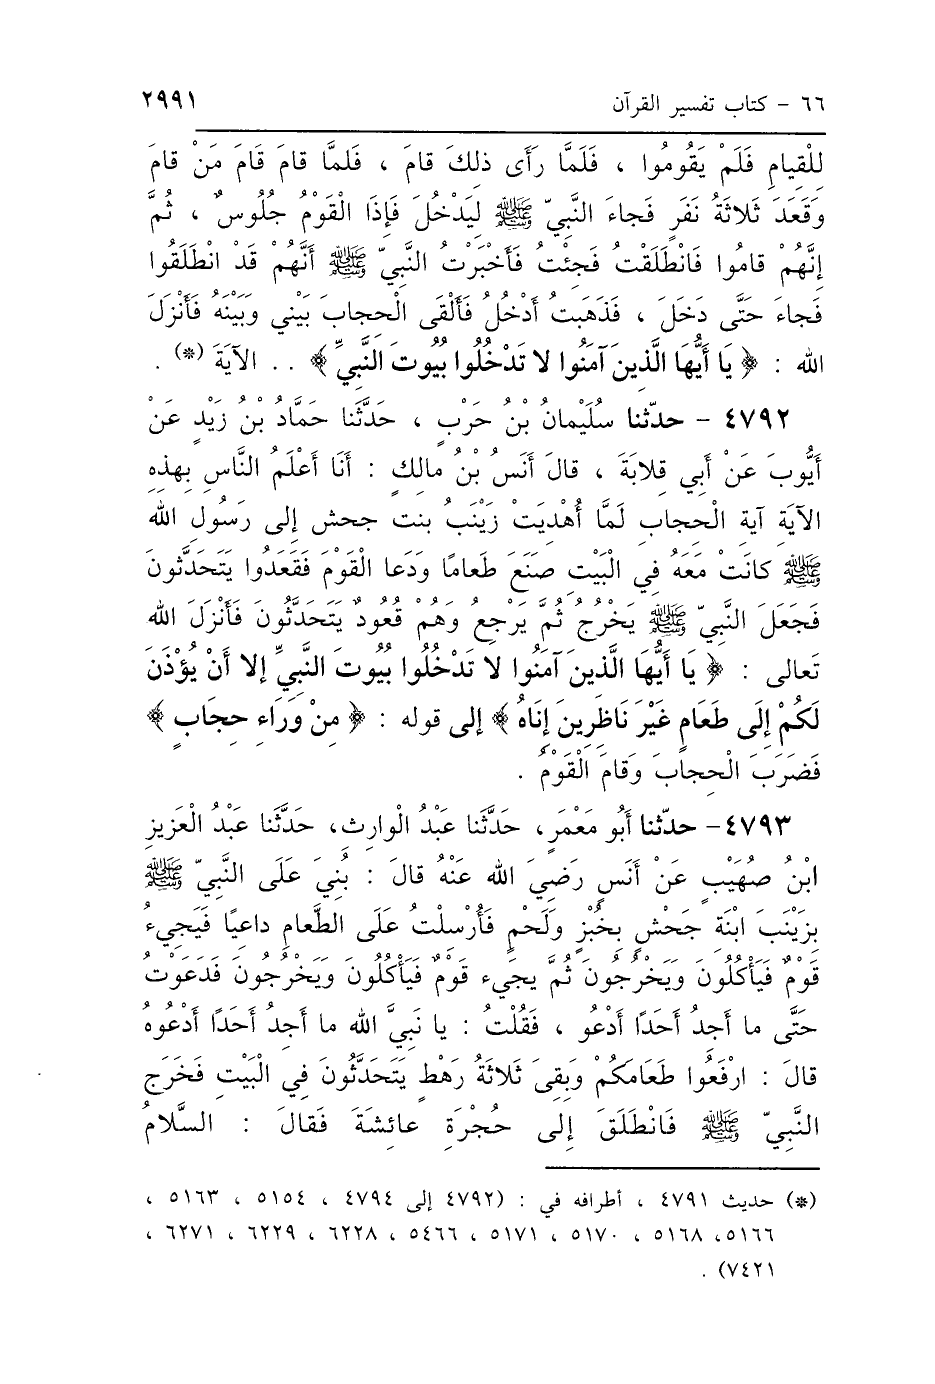 ٦٦ - كتاب تفسير القرآن ٢٩٩١
لِلْقِيامِ فَلَمْ يَقُومُوا ، فَلَمَّا رَأَى ذلِكَ قامَ ، فَلَمَّا قامَ قَامَ مَنْ قامَ
وَقَعَدَ ثَلاثَةُ نَفَرٍ فَجاءَ النَّبِيّ ﷺ لِيَدْخُلَ فَإِذَا الْقَوْمُ جُلُوسٌ ، ثُمَّ
إِنَّهُمْ قاموا فَانْطَلَقْتُ فَجِئْتُ فَأَخْبَرْتُ النَّبِيّ ﷺ أَنَّهُمْ قَدْ انْطَلَقُوا
فَجاءَ حَتَّى دَخَلَ ، فَذَهَبَتُ أَدْخُلُ فَأَلْقَى الْحِجابَ بَيْنِي وَبَيْنَهُ فَأَنْزَلَ
الله : ﴿ يَا أَيُّهَا الَّذِينَ آمَنُوا لا تَدْخُلُوا بُيُوتَ النَّبِيِّ ﴾ . . الآيَةَ (*) .
٤٧٩٢ - حدّثنا سُلَيْمانُ بْنُ حَرْبٍ ، حَدَّثَنا حَمَّادُ بْنُ زَيْدٍ عَنْ
أَيُّوبَ عَنْ أَبِي قِلابَةَ ، قالَ أَنَسُ بْنُ مالِكٍ : أَنَا أَعْلَمُ النَّاسِ بِهذِهِ
الآيَةِ آيةِ الْحِجابِ لَمَّا أُهْدِيَتْ زَيْنَبُ بنت جحش إلى رَسُولِ الله
ﷺ كانَتْ مَعَهُ فِي الْبَيْتِ صَنَعَ طَعامًا وَدَعا الْقَوْمَ فَقَعَدُوا يَتَحَدَّثُونَ
فَجَعَلَ النَّبِيّ ﷺ يَخْرُجُ ثُمَّ يَرْجِعُ وَهُمْ قُعُودٌ يَتَحَدَّثُونَ فَأَنْزَلَ الله
تَعالى : ﴿ يَا أَيُّهَا الَّذِينَ آمَنُوا لا تَدْخُلُوا بُيُوتَ النَّبِيِّ إلا أَنْ يُؤْذَنَ
لَكُمْ إِلَى طَعَامٍ غَيْرَ نَاظِرِينَ إِنَاهُ ﴾ إلى قوله : ﴿ مِنْ وَرَاءِ حِجَابٍ ﴾
فَضَرَبَ الْحِجابَ وَقامَ الْقَوْمُ .
٤٧٩٣- حدّثنا أَبُو مَعْمَرٍ، حَدَّثَنا عَبْدُ الْوارِثِ، حَدَّثَنا عَبدُ الْعَزِيزِ
ابْنُ صُهَيْبٍ عَنْ أَنَسٍ رَضِيَ الله عَنْهُ قالَ : بُنِيَ عَلَى النَّبِيّ ﷺ
بِزَيْنَبَ ابْنَةِ جَحْشٍ بِخُبْزٍ وَلَحْمٍ فَأُرْسِلْتُ عَلَى الطَّعامِ داعِيًا فَيَجِيءُ
قَوْمٌ فَيَأْكُلُونَ وَيَخْرُجُونَ ثُمَّ يجيء قَوْمٌ فَيَأْكُلُونَ وَيَخْرُجُونَ فَدَعَوْتُ
حَتَّى ما أَجِدُ أَحَدًا أَدْعُو ، فَقُلْتُ : يا نَبِيَّ الله ما أَجِدُ أَحَدًا أَدْعُوهُ
قالَ : ارْفَعُوا طَعَامَكُمْ وَبَقِىَ ثَلاثَةُ رَهْطٍ يَتَحَدَّثُونَ فِي الْبَيْتِ فَخَرَج
النَّبِيّ ﷺ فَانْطَلَقَ إِلى حُجْرَةِ عائِشَةَ فَقالَ : السَّلامُ
(*) حديث ٤٧٩١ ، أطرافه في : (٤٧٩٢ إلى ٤٧٩٤ ، ٥١٥٤ ، ٥١٦٣ ،
٥١٦٦، ٥١٦٨ ، ٥١٧٠ ، ٥١٧١ ، ٥٤٦٦ ، ٦٢٢٨ ، ٦٢٢٩ ، ٦٢٧١ ،
٧٤٢١) .